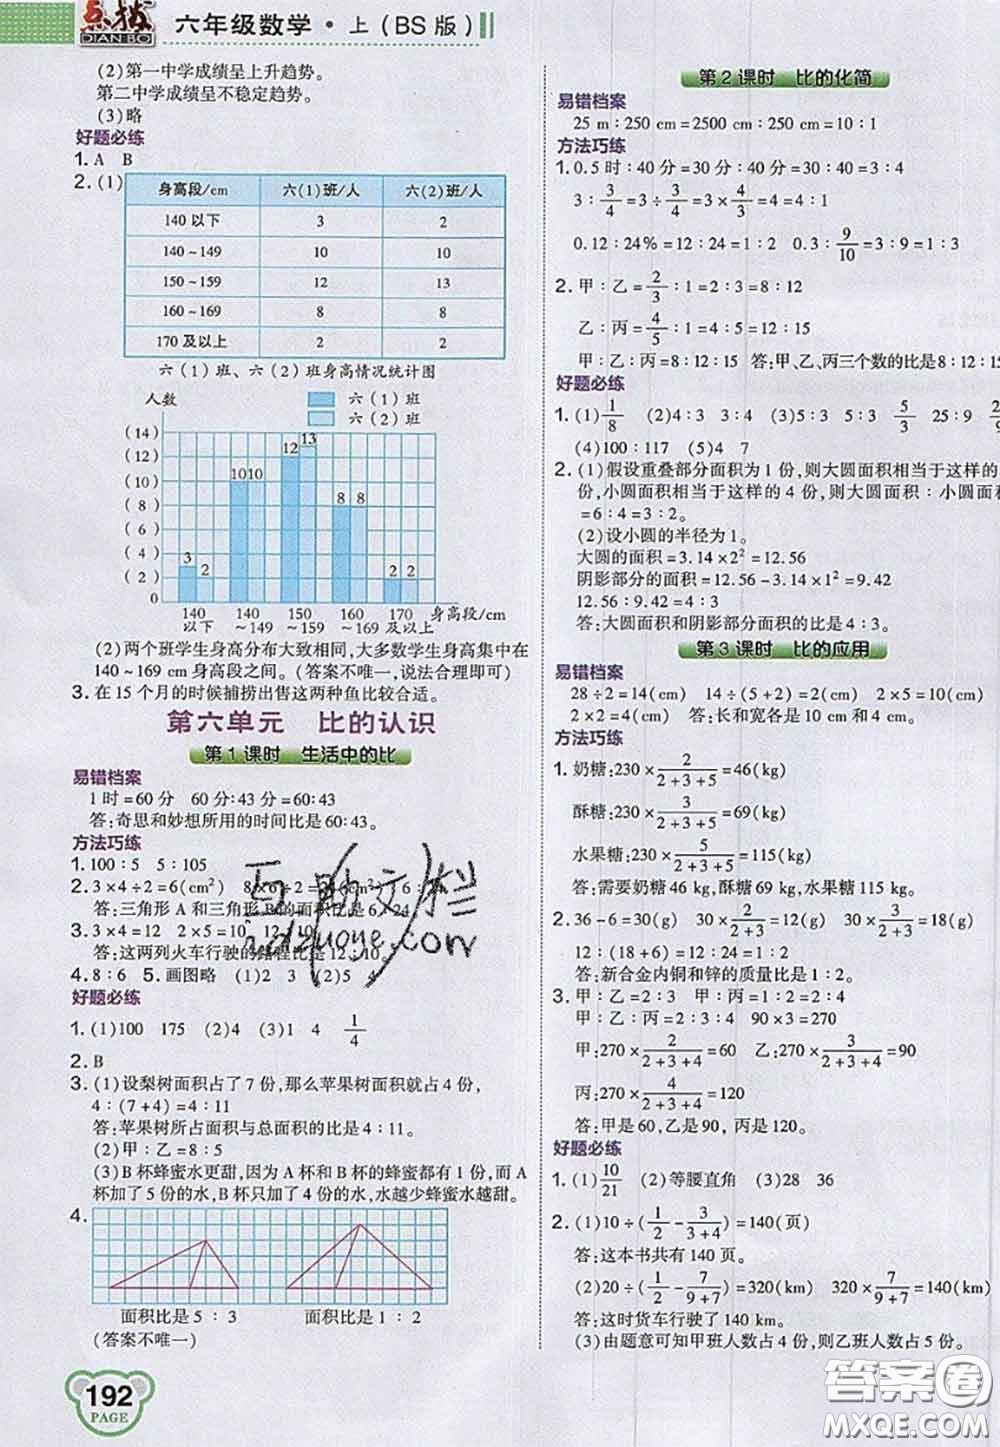 点拨 DIAN BO 六年级数学·上(BS版)
(2)第一中学成绩呈上升趋势。
第二中学成绩呈不稳定趋势。
(3)略
好题必练
1. A B
2. (1)
身高段/cm 六(1)班/人 六(2)班/人
140以下 3 2
140~149 10 10
150~159 12 13
160~169 8 8
170及以上 2 2
六(1)班、六(2)班身高情况统计图
人数 六(1)班
六(2)班
(14)
(12) 12 13
(10) 10 10
(8) 8 8
(6)
(4) 3
(2) 2 2 2
0
140 140 150 160 170 身高段/cm
以下 ~149 ~159 ~169 及以上
(2)两个班学生身高分布大致相同,大多数学生身高集中在
140~169 cm身高段之间。(答案不唯一,说法合理即可)
3. 在15个月的时候捕捞出售这两种鱼比较合适。
第六单元 比的认识
第1课时 生活中的比
易错档案
1时=60分 60分:43分=60:43
答:奇思和妙想所用的时间比是60:43。
方法巧练
1. 100:5 5:105
2. 3×4÷2=6(cm²) 8×6÷2=
答:三角形A和三角形B的面积比是6:24
3. 3×4=12 2×5=10 12:10
答:这两列火车行驶的路程比是12:10。
4. 8:6 5. 画图略 (1)2 3 (2)5 4
好题必练
1. (1)100 175 (2)4 (3)1 4 1/4
2. B
3. (1)设梨树面积占了7份,那么苹果树面积就占4份,
4:(7+4)=4:11
答:苹果树所占面积与总面积的比是4:11。
(2)甲:乙=8:5
(3)B杯蜂蜜水更甜,因为A杯和B杯的蜂蜜都有1份,而A
杯加了5份的水,B杯只加了4份的水,水越少蜂蜜水越甜。
4.
面积比是5:3 面积比是1:2
(答案不唯一)
192
PAGE
第2课时 比的化简
易错档案
25 m:250 cm=2500 cm:250 cm=10:1
方法巧练
1. 0.5时:40分=30分:40分=30÷40=3:4
3:3/4=3÷3/4=3×4/3=4=4:1
0.12:24%=12:24=1:2 0.3:9/10=0.3÷0.9=
2. 甲:乙=2/3:1=2:3=8:12
乙:丙=4/5:1=4:5=12:15
甲:乙:丙=8:12:15 答:甲、乙、丙三个数的比是8:12:15
好题必练
1. (1)1/8 (2)4:3 3:4 (3)5:3 5÷3 5/3 25:9
(4)100:117 (5)4 7
2. (1)假设重叠部分面积为1份,则大圆面积相当于这样的
份,小圆面积相当于这样的4份,则大圆面积:小圆面积
=6:4=3:2。
(2)设小圆的半径为1。
大圆的面积=3.14×2²=12.56
阴影部分的面积=12.56-3.14×1²=9.42
12.56:9.42=4:3
答:大圆面积和阴影部分面积的比是4:3。
第3课时 比的应用
易错档案
28÷2=14(cm) 14÷(5+2)=2(cm) 2×5=10(cm)
2×2=4(cm) 答:长和宽各是10 cm和4 cm。
方法巧练
1. 奶糖:230×2/(2+3+5)=46(kg)
酥糖:230×3/(2+3+5)=69(kg)
水果糖:230×5/(2+3+5)=115(kg)
答:需要奶糖46 kg,酥糖69 kg,水果糖115 kg。
2. 36-6=30(g) 30×2/(2+3)=12(g) 30×3/(2+3)=18(g)
12:(18+6)=12:24=1:2
答:新合金内铜和锌的质量比是1:2。
3. 甲:乙=2:3 甲:丙=1:2=2:4
甲:乙:丙=2:3:4 90×3=270
甲:270×2/(2+3+4)=60 乙:270×3/(2+3+4)=90
丙:270×4/(2+3+4)=120
答:甲是60,乙是90,丙是120。
好题必练
1. (1)10/21 (2)等腰直角 (3)28 36
2. (1)10÷(1/2-3/(3+4))=140(页)
答:这本书共有140页。
(2)20÷(1/2-7/(9+7))=320(km) 320×7/(9+7)=140(km)
答:这时货车行驶了140 km。
(3)由题意可知甲班人数占4份,则乙班人数占5份。
互助文栏
答案圈
MXQE.COM